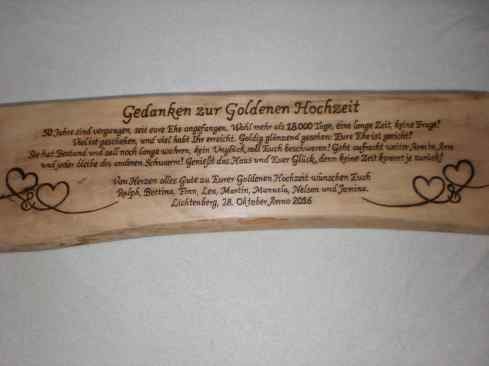 Gedanken zur Goldenen Hochzeit
50 Jahre sind vergangen, seit eure Ehe angefangen. Wohl mehr als 18.000 Tage, eine lange Zeit, keine Frage!
Viel ist geschehen, und viel habt Ihr erreicht. Goldig glänzend gesehen: Eure Ehe ist geeicht!
Sie hat Bestand und soll noch lange währen, kein Unglück soll Euch beschweren! Geht aufrecht weiter Arm in Arm
und wär des andren Schwarm! Genießt das Haus und Euer Glück, denn keine Zeit kommt je zurück!
Von Herzen alles Gute zu Eurer Goldenen Hochzeit wünschen Euch
Ralph, Bettina, Finn, Lea, Martin, Manuela, Nelson und Jamina.
Lichtenberg, 28. Oktober Anno 2016